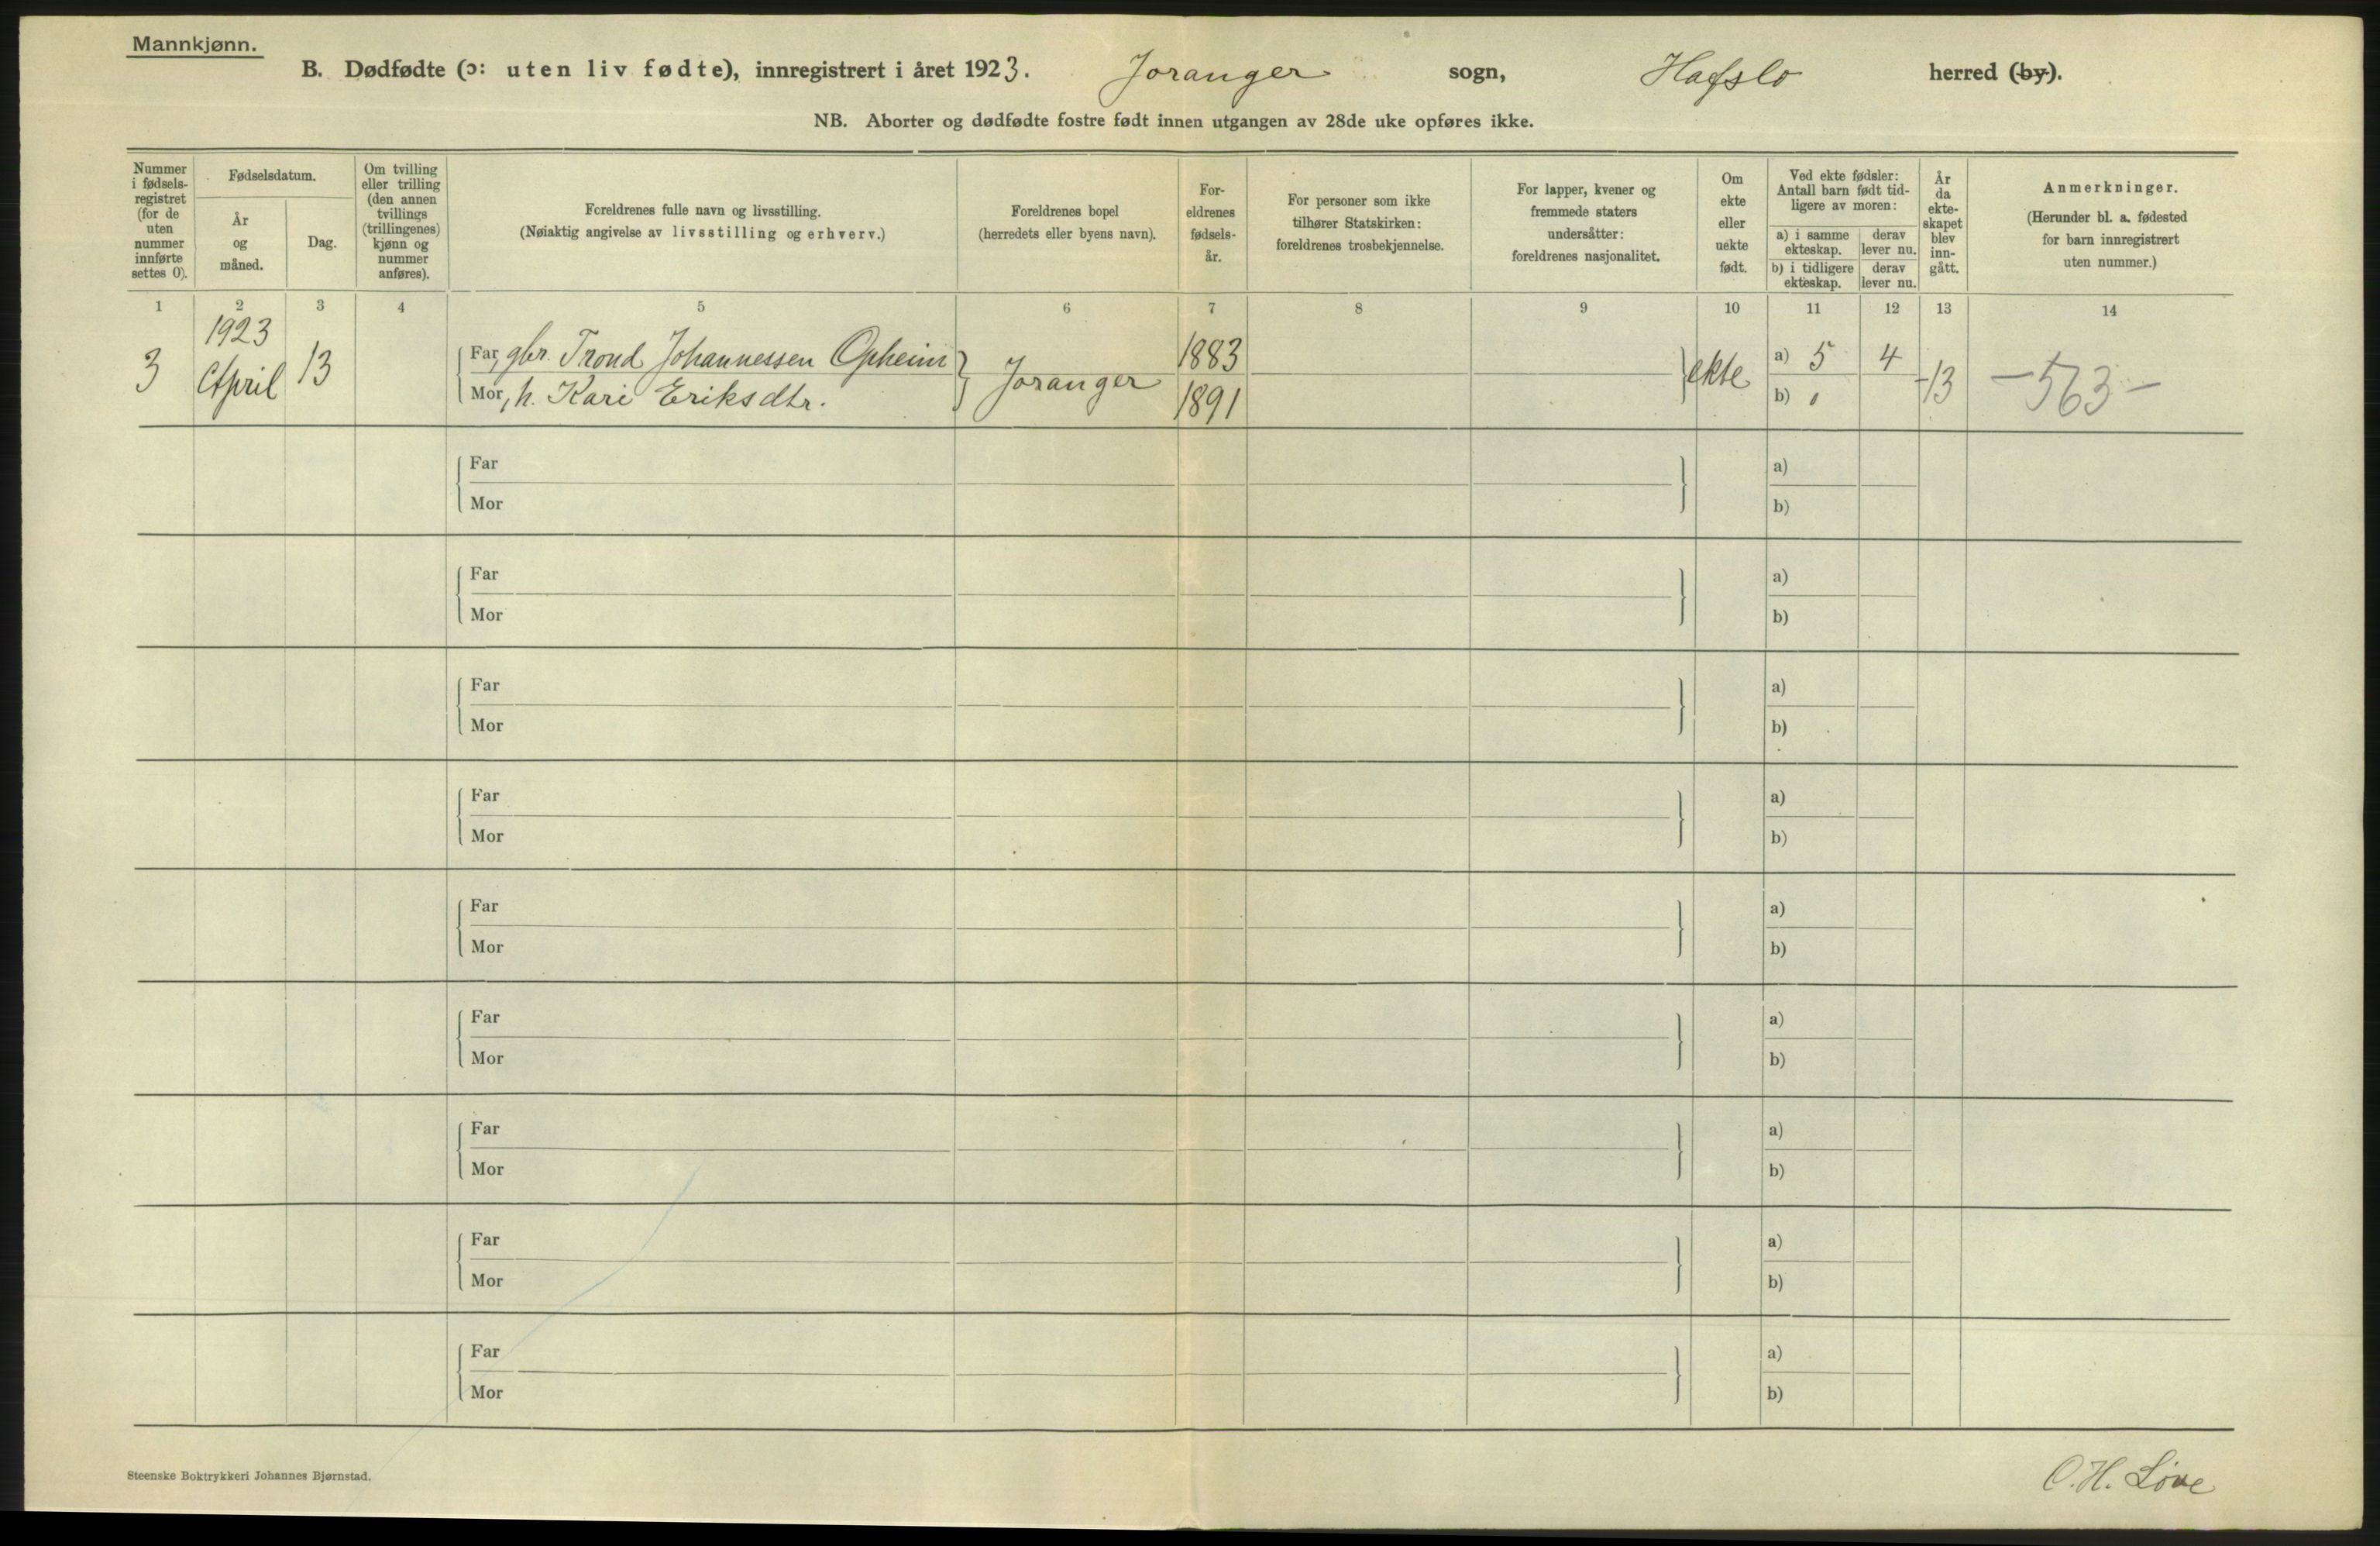 Mannkjønn.
B. Dødfødte (ɔ: uten liv fødte), innregistrert i året 1923. Joranger sogn, Hafslo herred (by).
NB. Aborter og dødfødte fostre født innen utgangen av 28de uke opføres ikke.
Nummer
i fødsels-
registret
(for de
uten
nummer
innførte
settes 0).
Fødselsdatum.
År
og
måned.
Dag.
Om tvilling
eller trilling
(den annen
tvillings
(trillingenes)
kjønn og
nummer
anføres).
Foreldrenes fulle navn og livsstilling.
(Nøiaktig angivelse av livsstilling og erhverv.)
Foreldrenes bopel
(herredets eller byens navn).
For-
eldrenes
fødsels-
år.
For personer som ikke
tilhører Statskirken:
foreldrenes trosbekjennelse.
For lapper, kvener og
fremmede staters
undersåtter:
foreldrenes nasjonalitet.
Om
ekte
eller
uekte
født.
Ved ekte fødsler:
Antall barn født tid-
ligere av moren:
a) i samme
ekteskap.
derav
lever nu.
b) i tidligere
ekteskap.
derav
lever nu.
År
da
ekte-
skapet
blev
inn-
gått.
Anmerkninger.
(Herunder bl. a. fødested
for barn innregistrert
uten nummer.)
1 2 3 4 5 6 7 8 9 10 11 12 13 14
1923
3 April 13
Far, gbr. Trond Johannessen Opheim
Mor, h. Kari Eriksdtr.
Joranger
1883
1891
ekte
a) 5 4
b) 0
-13
-563-
Far a)
Mor b)
Far a)
Mor b)
Far a)
Mor b)
Far a)
Mor b)
Far a)
Mor b)
Far a)
Mor b)
Far a)
Mor b)
Far a)
Mor b)
Far a)
Mor b)
Steenske Boktrykkeri Johannes Bjørnstad.
O. H. Løve